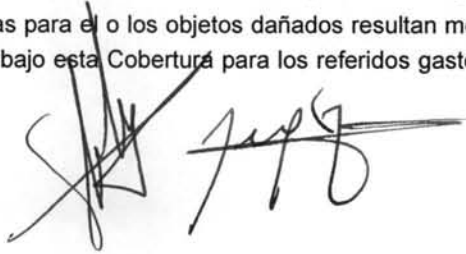 as para el o los objetos dañados resultan
bajo esta Cobertura para los referidos